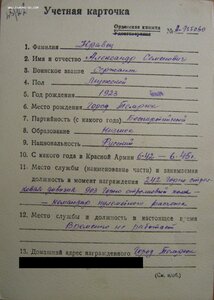 Учетная карточка
Орденская книжка
Удостоверение
№ В-955060
1. Фамилия Кравец
2. Имя и отчество Александр Семенович
3. Воинское звание Сержант
4. Пол Мужской
5. Год рождения 1923
6. Место рождения Город Темрюк
7. Партийность (с какого года) Беспартийный
8. Образование низшее
9. Национальность Русский
10. С какого года в Красной Армии 6-42 - 6-45г.
11. Место службы (наименование части) и занимаемая
должность в момент награждения 242 Горно стрел
ковая дивизия 903 Горно стрелковый полк
командир пулеметного расчета
12. Место службы и должность в настоящее время
Временно не работает
13. Домашний адрес награжденного Город Темрюк
(См. на об.)